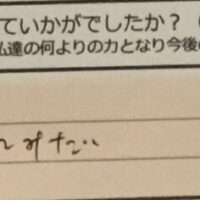 ていかがでしたか？
私達の何よりの力となり今後
みたい